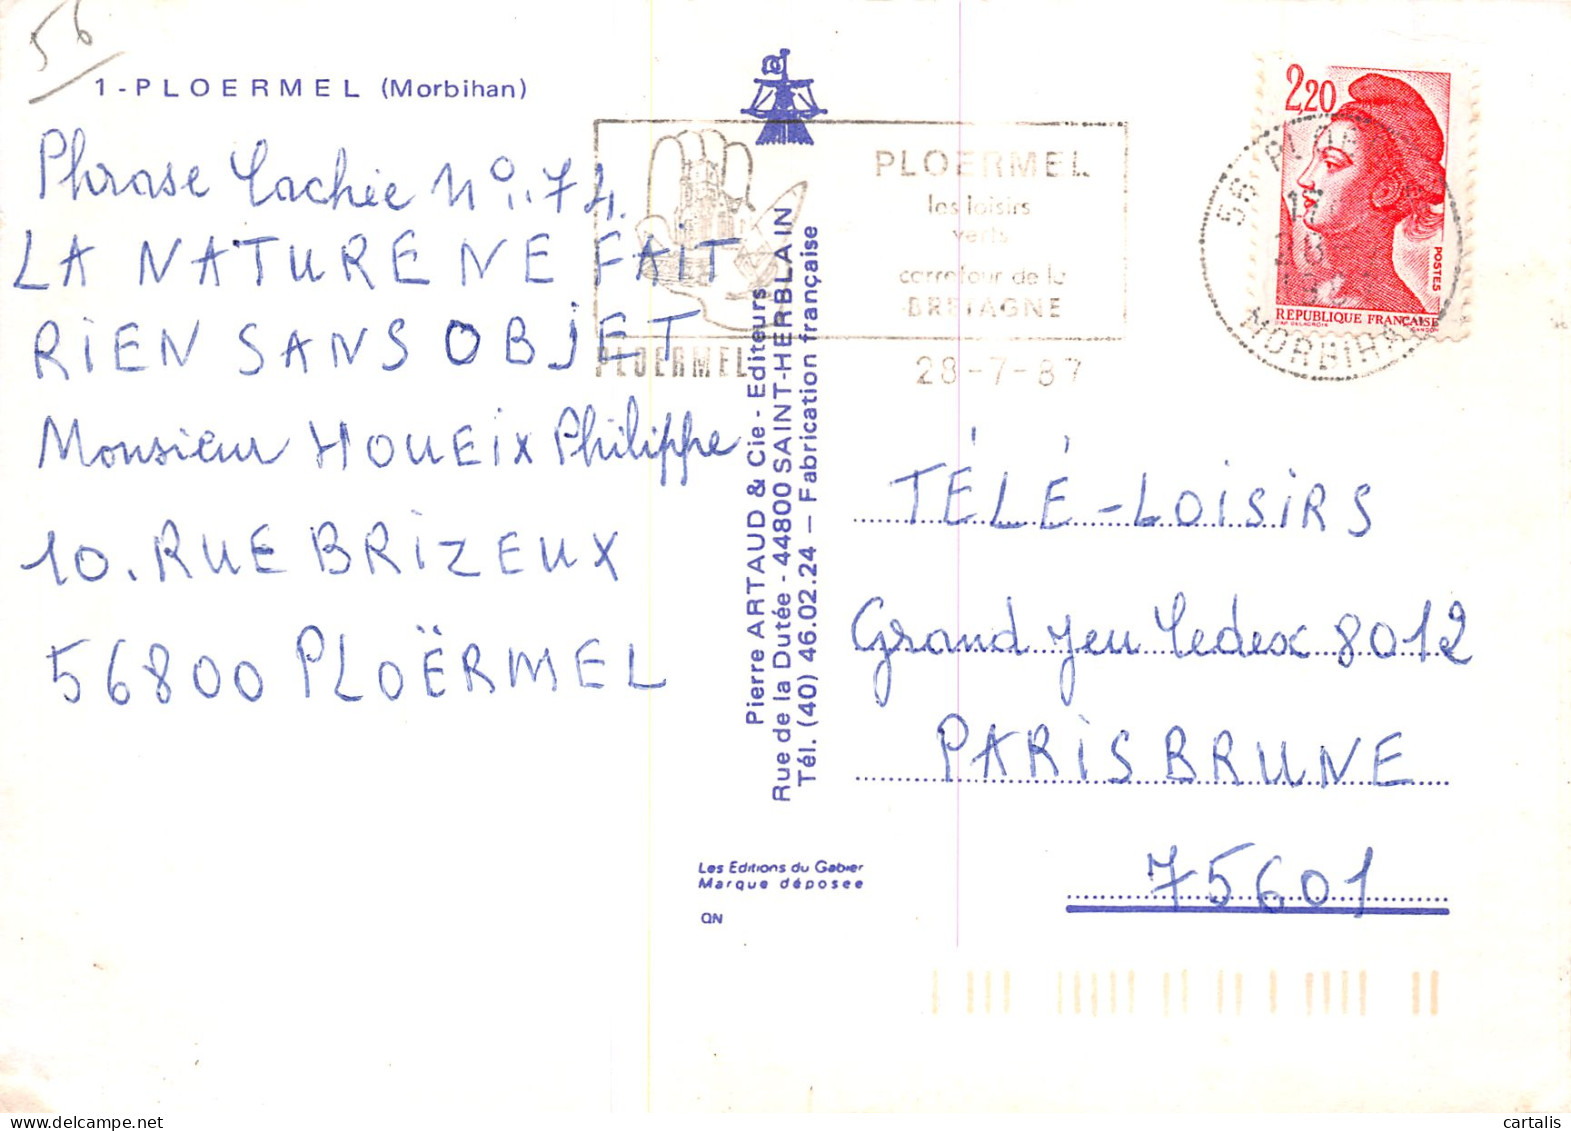 56
1 - PLOERMEL (Morbihan)
Phrase Cachée N°..74.
LA NATURE NE FAIT
RIEN SANS OBJET
Monsieur HOUEIX Philippe
10. RUE BRIZEUX
56800 PLOËRMEL
Pierre ARTAUD & Cie - Editeurs
Rue de la Dutée - 44800 SAINT-HERBLAIN
Tél. (40) 46.02.24 — Fabrication française
Les Editions du Gabier
Marque déposée
QN
PLOERMEL
les loisirs
verts
carrefour de la
BRETAGNE
PLOERMEL
28-7-87
2,20
POSTES
REPUBLIQUE FRANÇAISE
D'AP. DELACROIX GANDON
56 PLOERMEL
MORBIHAN
TÉLÉ-LOISIRS
Grand Jeu Cedex 8012
PARIS BRUNE
75601
cartalis